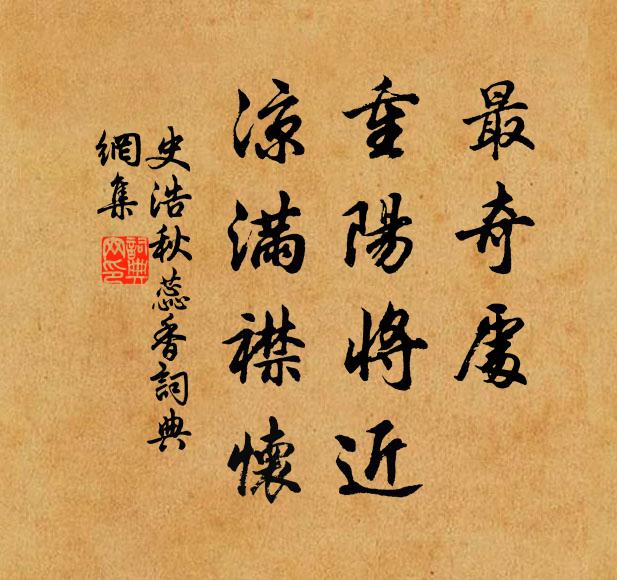 最奇處
重陽將近
涼滿襟懷
史浩秋蕊香詞典
網集
詞典
网印